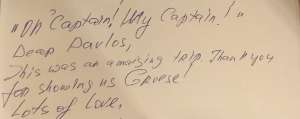 "Oh Captain! My Captain!"
Dear Pavlos,
This was an amazing trip. Thank you
for showing us Greece!
Lots of love,